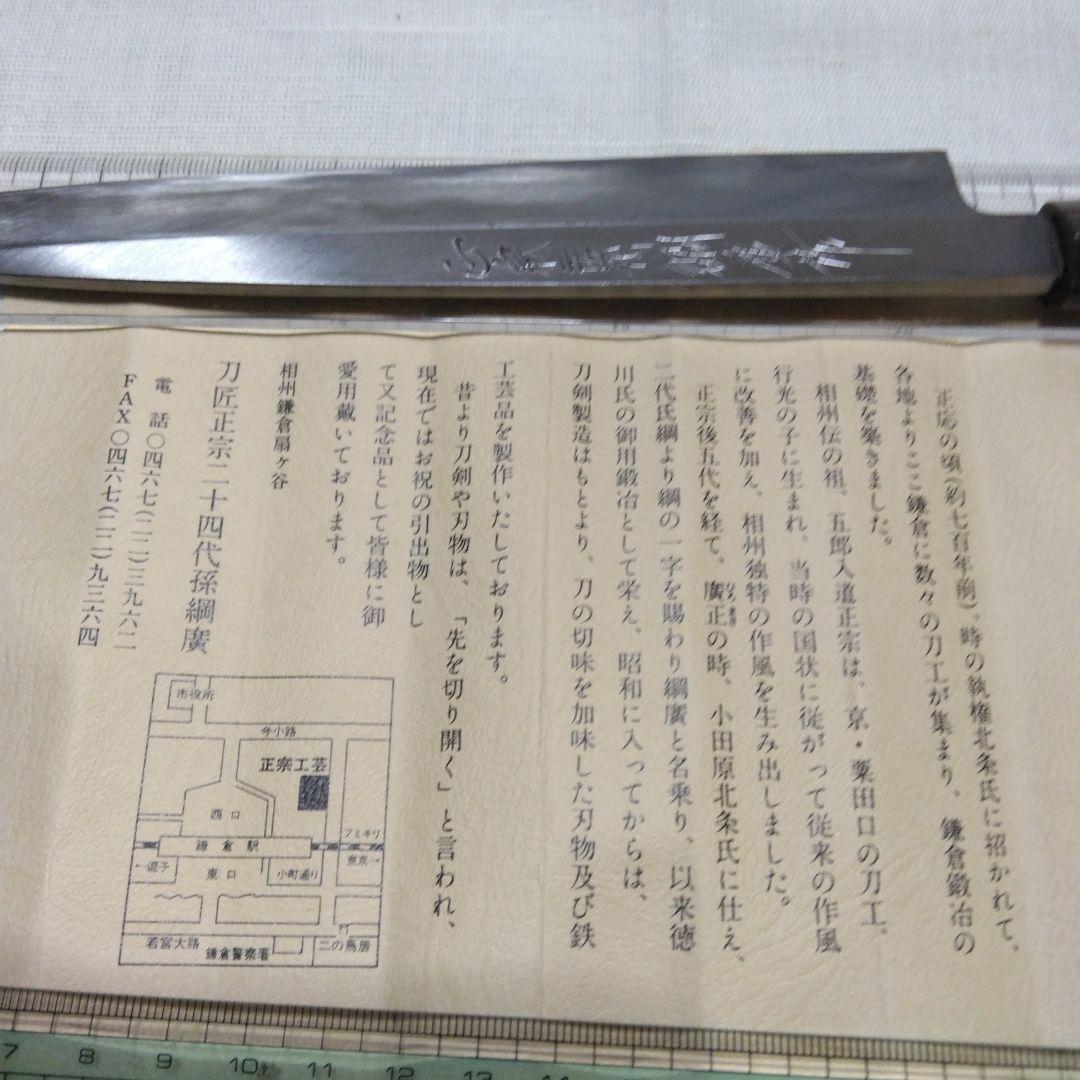 正応の頃(約七百年前)、時の執権北条氏に招かれて、
各地よりここ鎌倉に数々の刀工が集まり、鎌倉鍛冶の
基礎を築きました。
相州伝の祖、五郎入道正宗は、京・粟田口の刀工、
行光の子に生まれ、当時の国状に従がって従来の作風
に改善を加え、相州独特の作風を生み出しました。
正宗後五代を経て、廣正の時、小田原北条氏に仕え、
二代氏綱より綱の一字を賜わり綱廣と名乗り、以来徳
川氏の御用鍛冶として栄え、昭和に入ってからは、
刀剣製造はもとより、刀の切味を加味した刃物及び鉄
工芸品を製作いたしております。
昔より刀剣や刃物は、「先を切り開く」と言われ、
現在ではお祝の引出物とし
て又記念品として皆様に御
愛用戴いております。
相州鎌倉扇ヶ谷
刀匠正宗二十四代孫綱廣
電話〇四六七(二二)三九六二
FAX〇四六七(二二)九三六四
市役所
今小路
正宗工芸
西口
フミキリ
鎌倉駅
←逗子
東口
小町通り
東京→
若宮大路
鎌倉警察署
二の鳥居
7 8 9 10 11 12 13